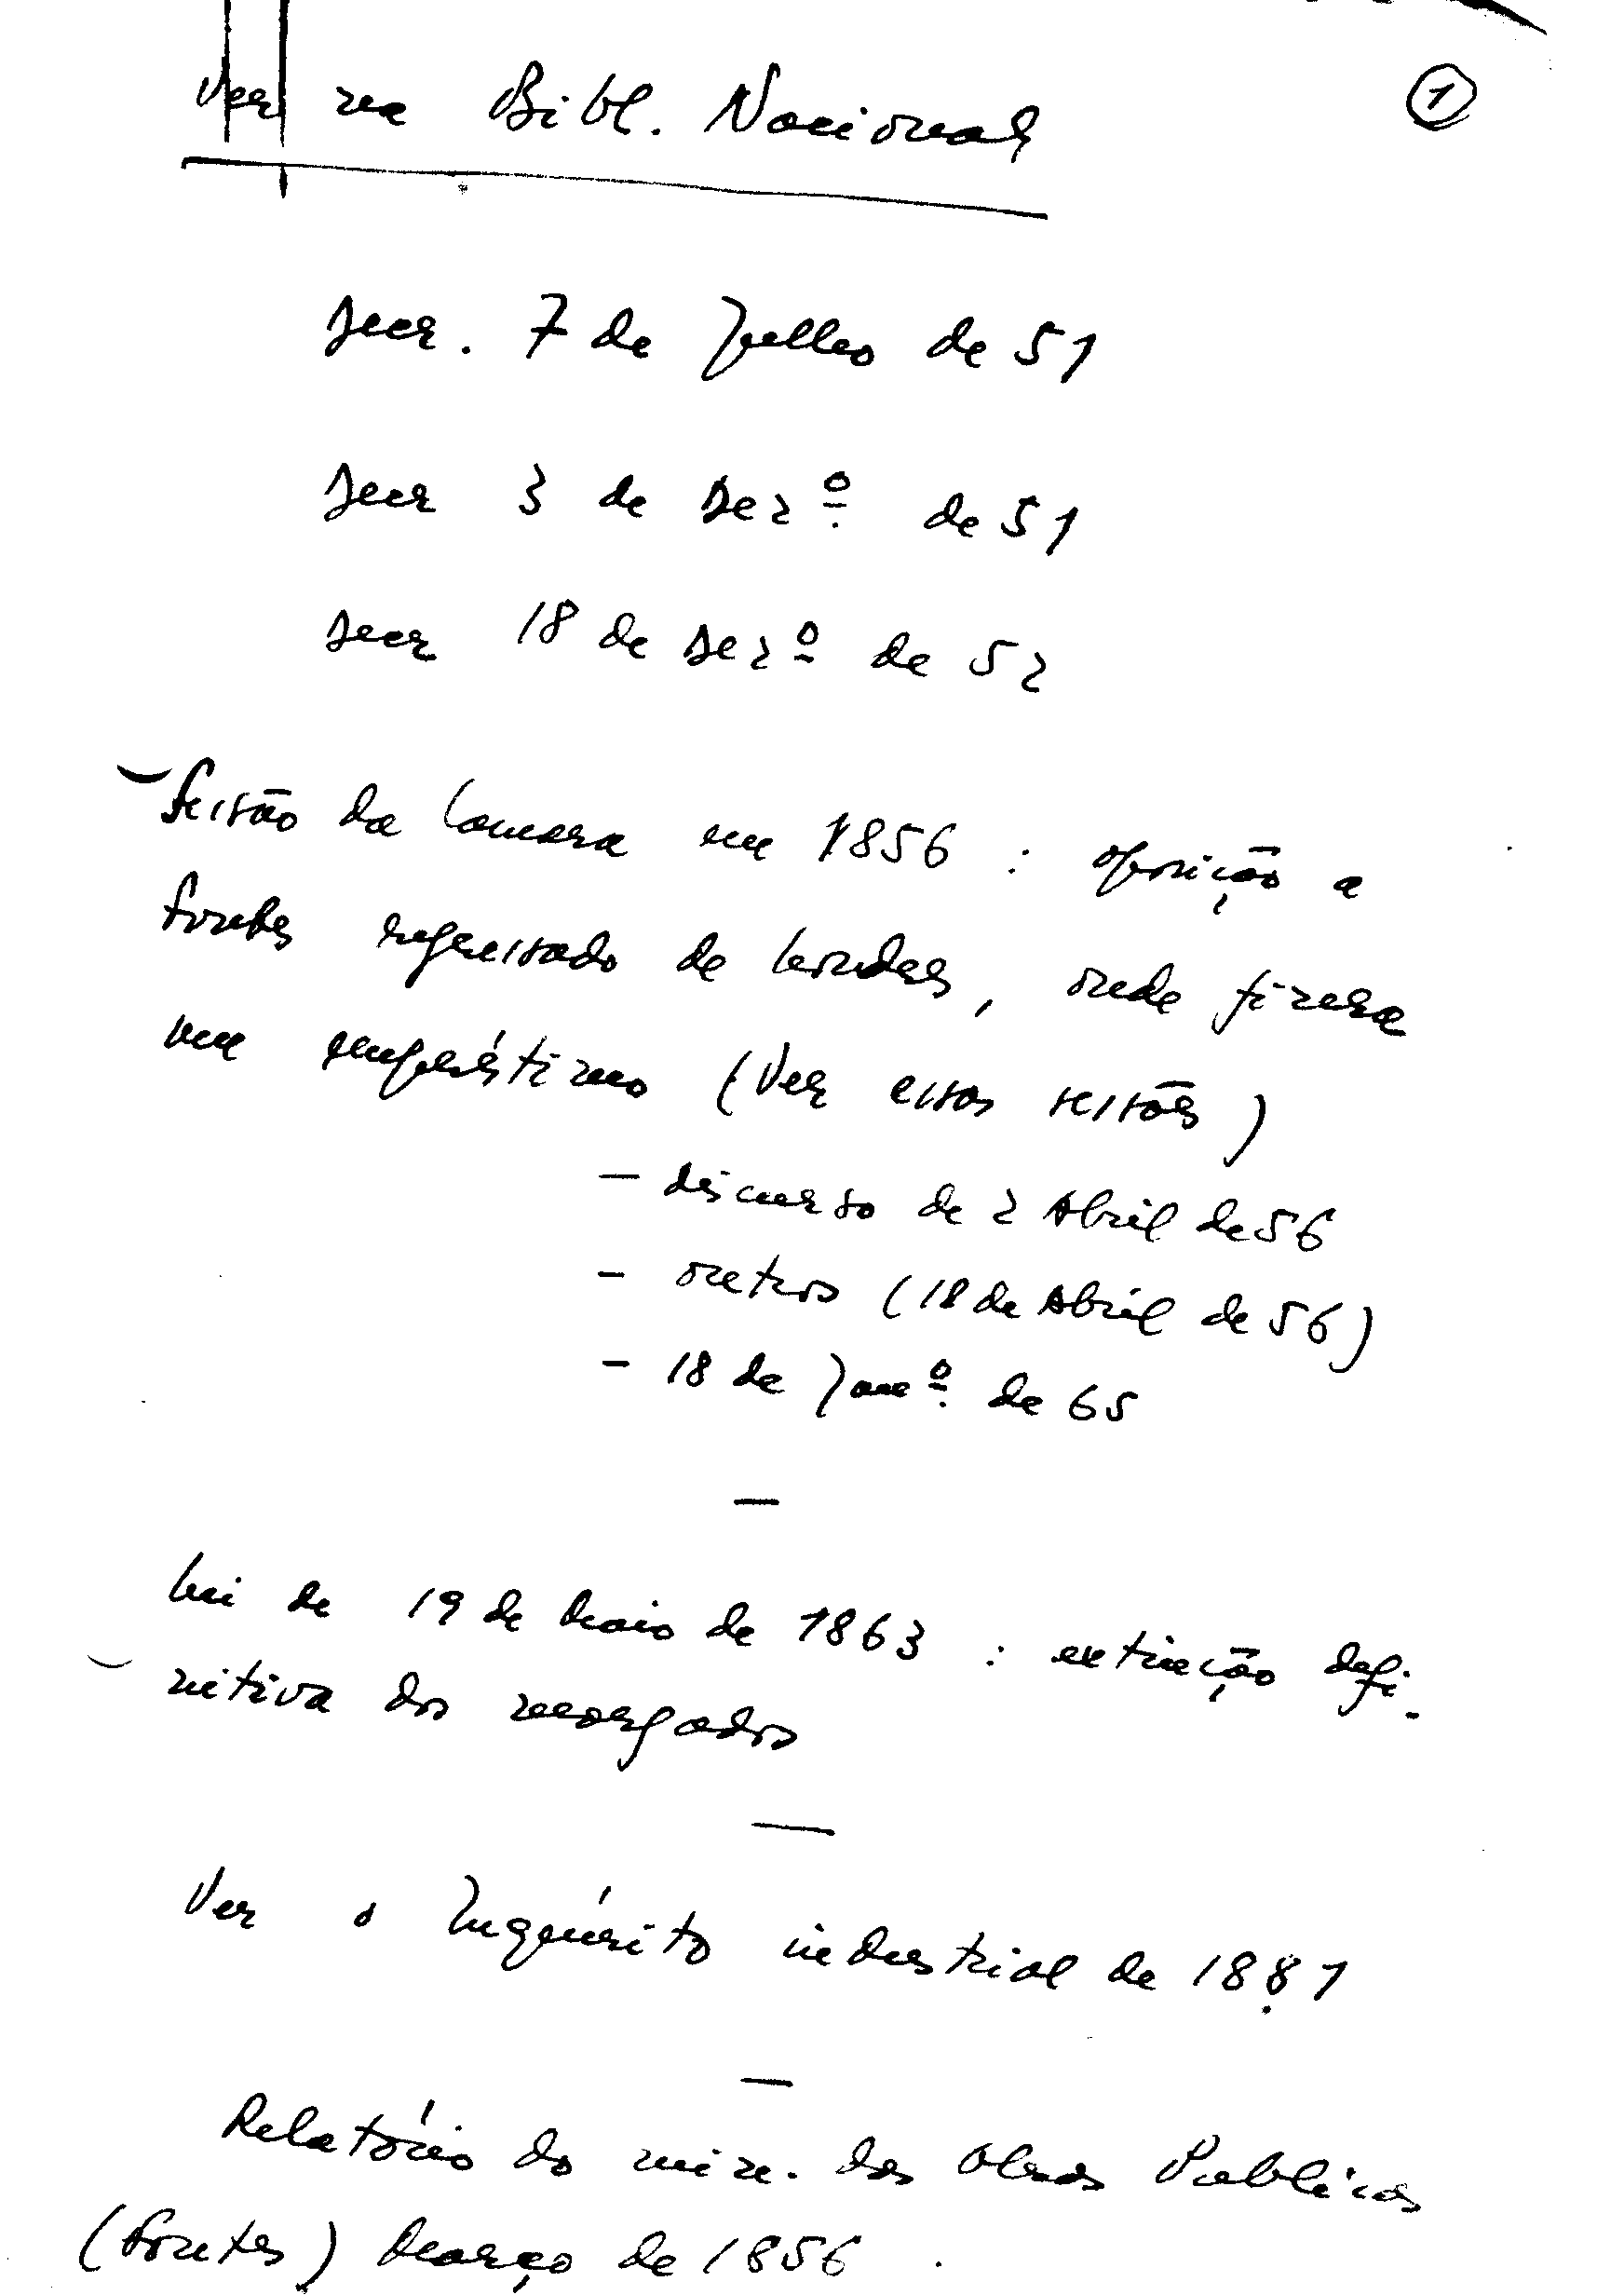 Ver na Bibl. Nacional
1
Decr. 7 de Julho de 51
Decr 3 de Dezº de 51
Decr 18 de Dezº de 52
Sessão da Camara em 1856 : oposição a
Fontes regressado de Londres, onde fizera
um empréstimo (Ver essas sessões)
- discurso de 2 Abril de 56
- outros (18 de Abril de 56)
- 18 de Janº de 65
—
Lei de 19 de Maio de 1863 : extinção defi-
nitiva dos morgados
—
Ver o Inquérito industrial de 1881
—
Relatório do min. das Obras Publicas
(Fontes) Março de 1856